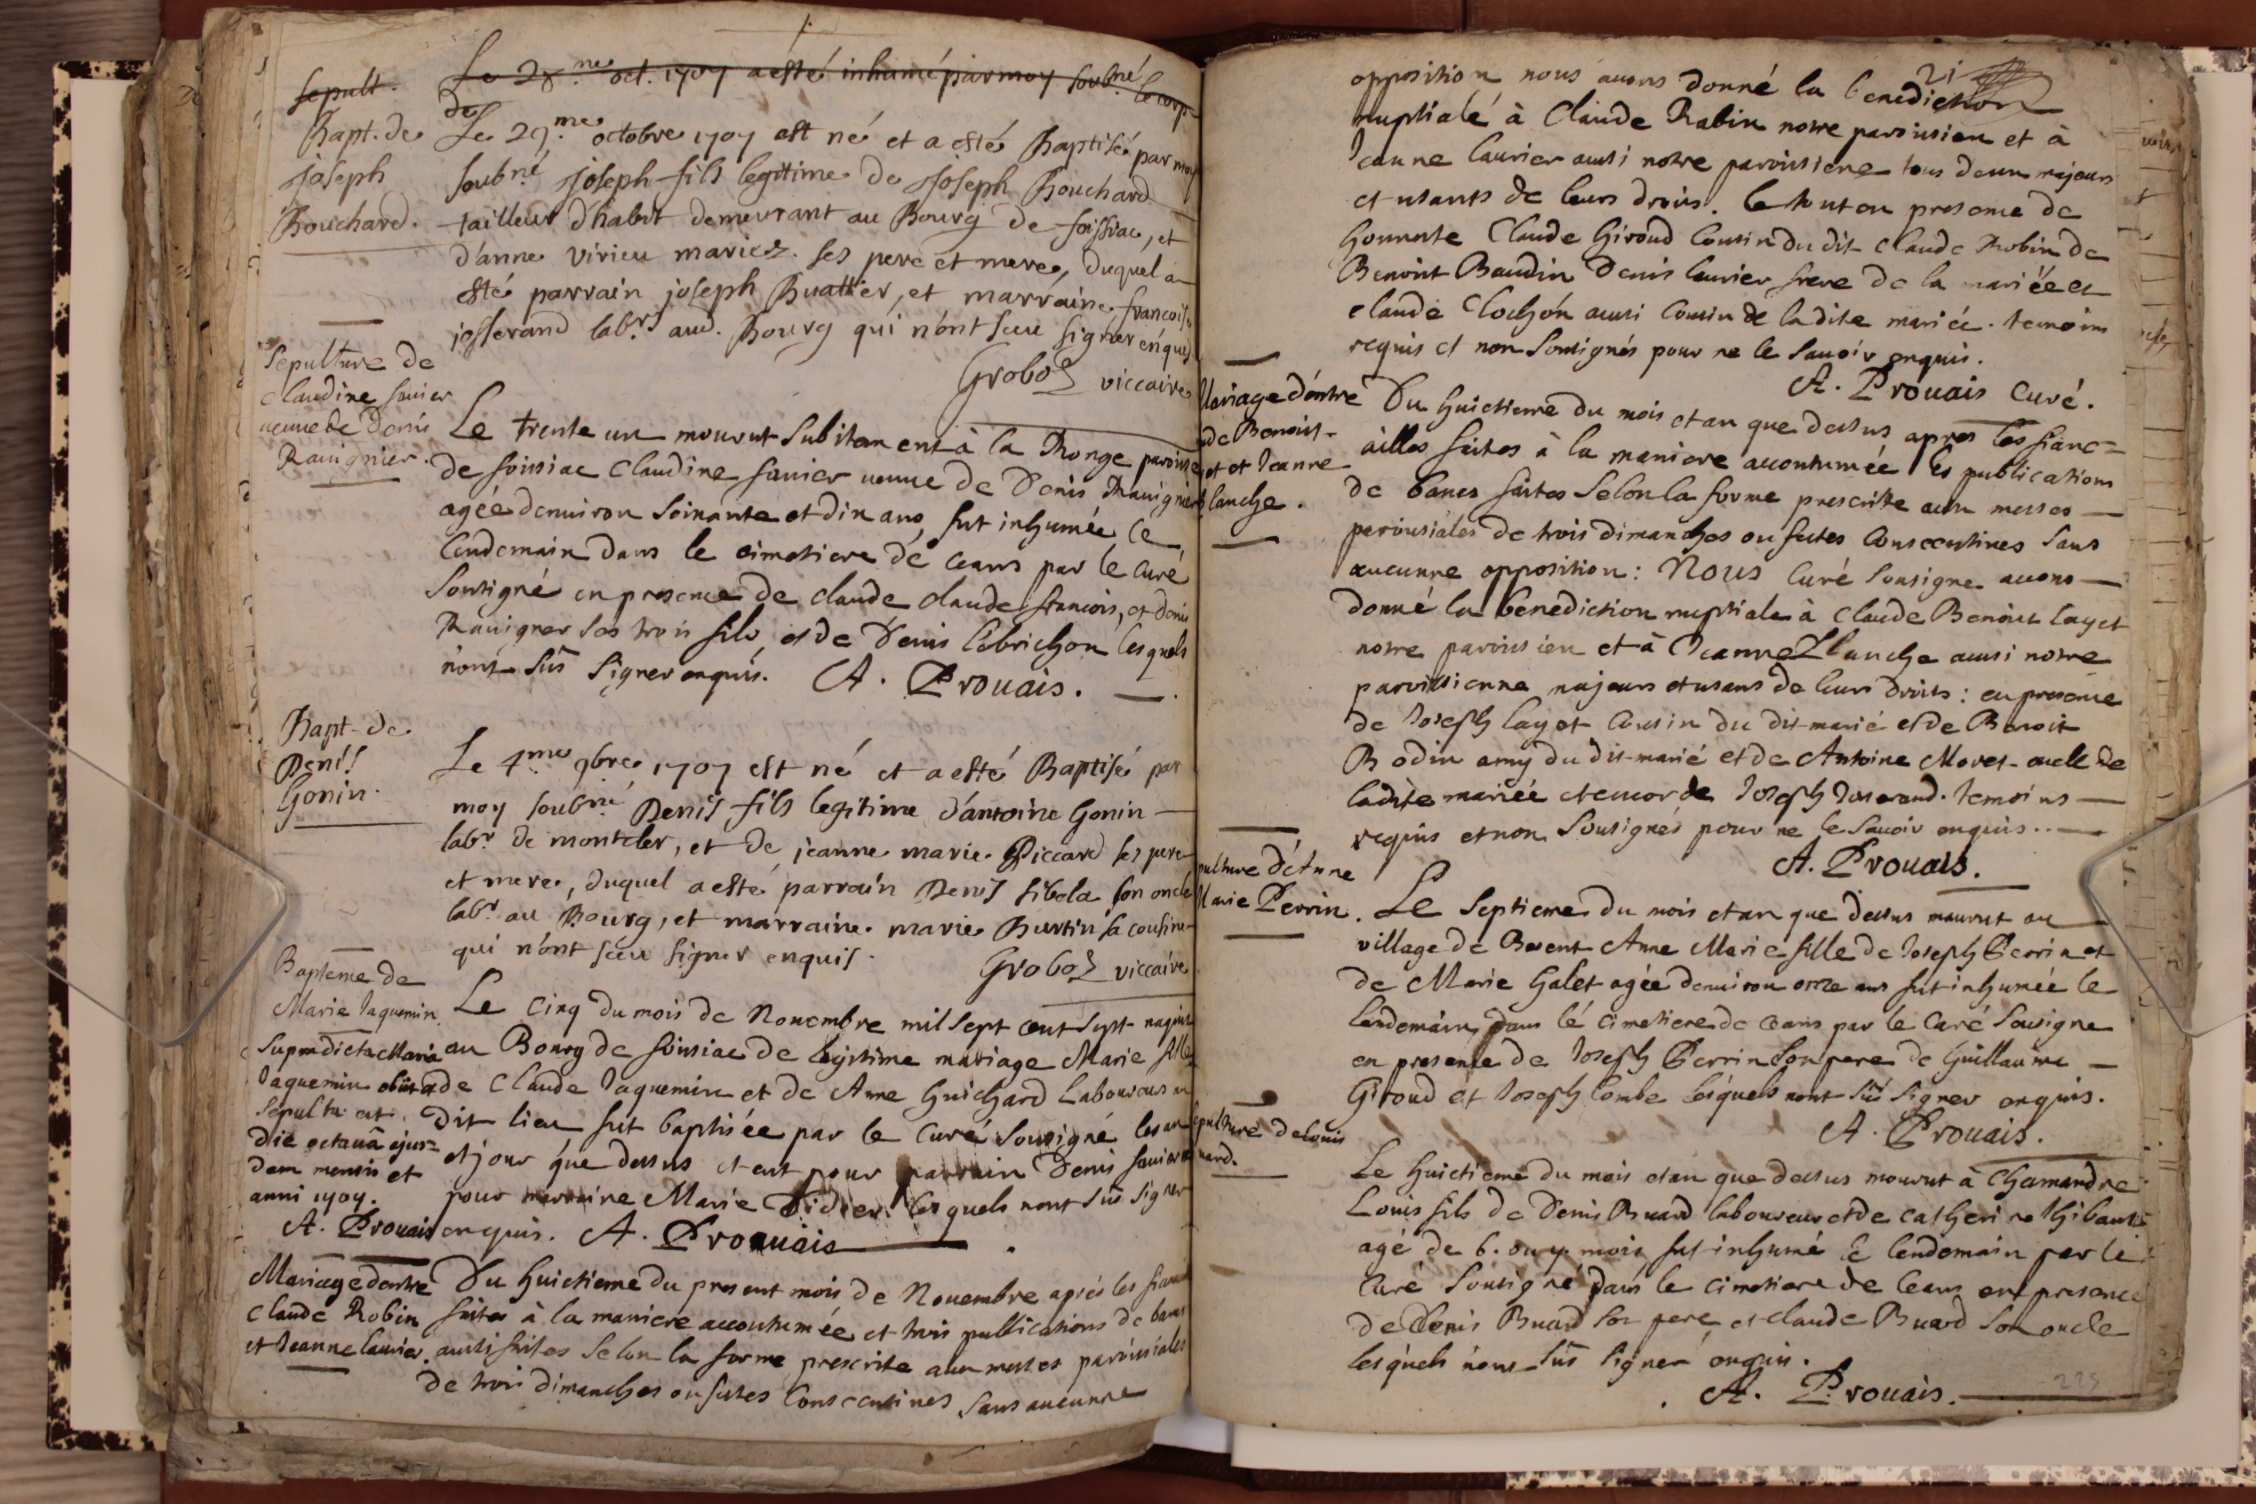 sepult. Le 28.me oct. 1707 a esté inhumé par moy soub.né le corp
de
Bapt. de
Joseph
Bouchard.
Le 29.me octobre 1707 est né et a esté Baptisé par moy
soub.né Joseph fils legitime de Joseph Bouchard
tailleur d'habit demeurant au Bourg de foissiac, et
d'anne virieu mariez. ses pere et mere, duquel a
esté parrain joseph Buattier, et marraine francoise
josserand lab.rs aud. Bourg qui n'ont sceu signer enquis
Groboz viccaire
Sepulture de
Claudine sauier
ueuue de Denis
Rauignier.
Le trente un mourut subitament à la Ronge paroisse
de foissiac Claudine sauier ueuue de Denis Rauignier
agée denuiron soixante et dix ans, fut inhumée le
lendemain dans le cimetiere de ceans par le Curé
sousigné en presence de claude claude francois, et denis
Rauigner ses trois fils, et de Denis Cebrichon lesquels
n'ont sus signer enquis. A. Prouais.
Bapt. de
Denis
Gonin.
Le 4.me 9bre 1707 est né et a esté Baptisé par
moy soub.né Denis fils legitime d'antoine Gonin
lab.r de montcler, et de jeanne marie Piccard ses pere
et mere, duquel a esté parrain Denis sibela son oncle
lab.r au Bourg, et marraine marie Burtin sa cousine
qui n'ont sceu signer enquis.
Groboz viccaire
Bapteme de
Marie Jaquemin
Supradicta Maria
Jaquemin obiit et
sepulta est
die octauâ ejus=
dem mensis et
anni 1707.
A. Prouais
Le cinq du mois de Nouembre mil sept cent sept naquit
au Bourg de foissiac de legitime mariage Marie fille
de Claude Jaquemin et de Anne Guichard Laboureurs du
dit lieu fut baptisée par le Curé sousigné les an
et jour que dessus et eut pour parrain Denis sauier et
pour marraine Marie Didier lesquels nont sus signer
enquis. A. Prouais
Mariage dentre
Claude Robin
et Jeanne laurier
Du huictieme du present mois de Nouembre apres les fianc
faites à la maniere accoutumée et trois publications de bancs
aussi faites selon la forme prescrite aux messes paroissiales
de trois dimanches ou festes consecutiues sans aucunne
21
opposition nous auons donné la benediction
nuptiale à Claude Rabin notre paroissien et à
Jeanne laurier aussi notre paroissiene tous deux majeurs
et usants de leurs droits. le tout en presence de
honneste Claude Giroud Cousin du dit Claude Robin de
Benoist Baudin Denis laurier frere de la mariée et
claude Clochon aussi Cousin de la dite mariée. temoins
requis et non sousignés pour ne le sauoir enquis.
A. Prouais Curé.
Mariage d'entre
de Benoist
et et Jeanne
blanche.
Du huictieme du mois et an que dessus apres les fianc=
ailles faites à la maniere accoutumée les publications
de bancs faites selon la forme prescrite aux messes
paroissiales de trois dimanches ou festes Consecutiues sans
aucunne opposition: Nous Curé sousigne auons
donné la benediction nuptiale à Claude Benoist layet
notre paroissien et à Jeanne blanche aussi notre
paroissienne majeurs et usans de leurs droits: en presence
de Joseph layet Cousin du dit marié et de Benoit
Bodin amy du dit marié et de Antoine Moret oncle de
ladite mariée et encor de Joseph Josserand. temoins
requis et non sousignés pour ne le sauoir enquis..
A. Prouais.
pulture d'Anne
Marie Perrin.
Le septieme du mois et an que dessus mourut au
village de Besent Anne Marie fille de Joseph Perrin et
de Marie Galet agée denuiron onze ans fut inhumée le
lendemain dans le cimetiere de ceans par le Curé sousigne
en presence de Joseph Perrin son pere de Guillaume
Giroud et Joseph Combe lesquels nont sus signer enquis.
A. Prouais.
epulture de louis
uard.
Le huictieme du mois et an que dessus mourut à Chamandre
Louis fils de Denis Buard laboureur et de Catherine thibaut
agé de 6. ou 7. mois fut inhumé le lendemain par le
Curé sousigné dans le cimetiere de ceans en presence
de Denis Buard son pere, et claude Buard son oncle
lesquels nont sus signer enquis.
A. Prouais.
225